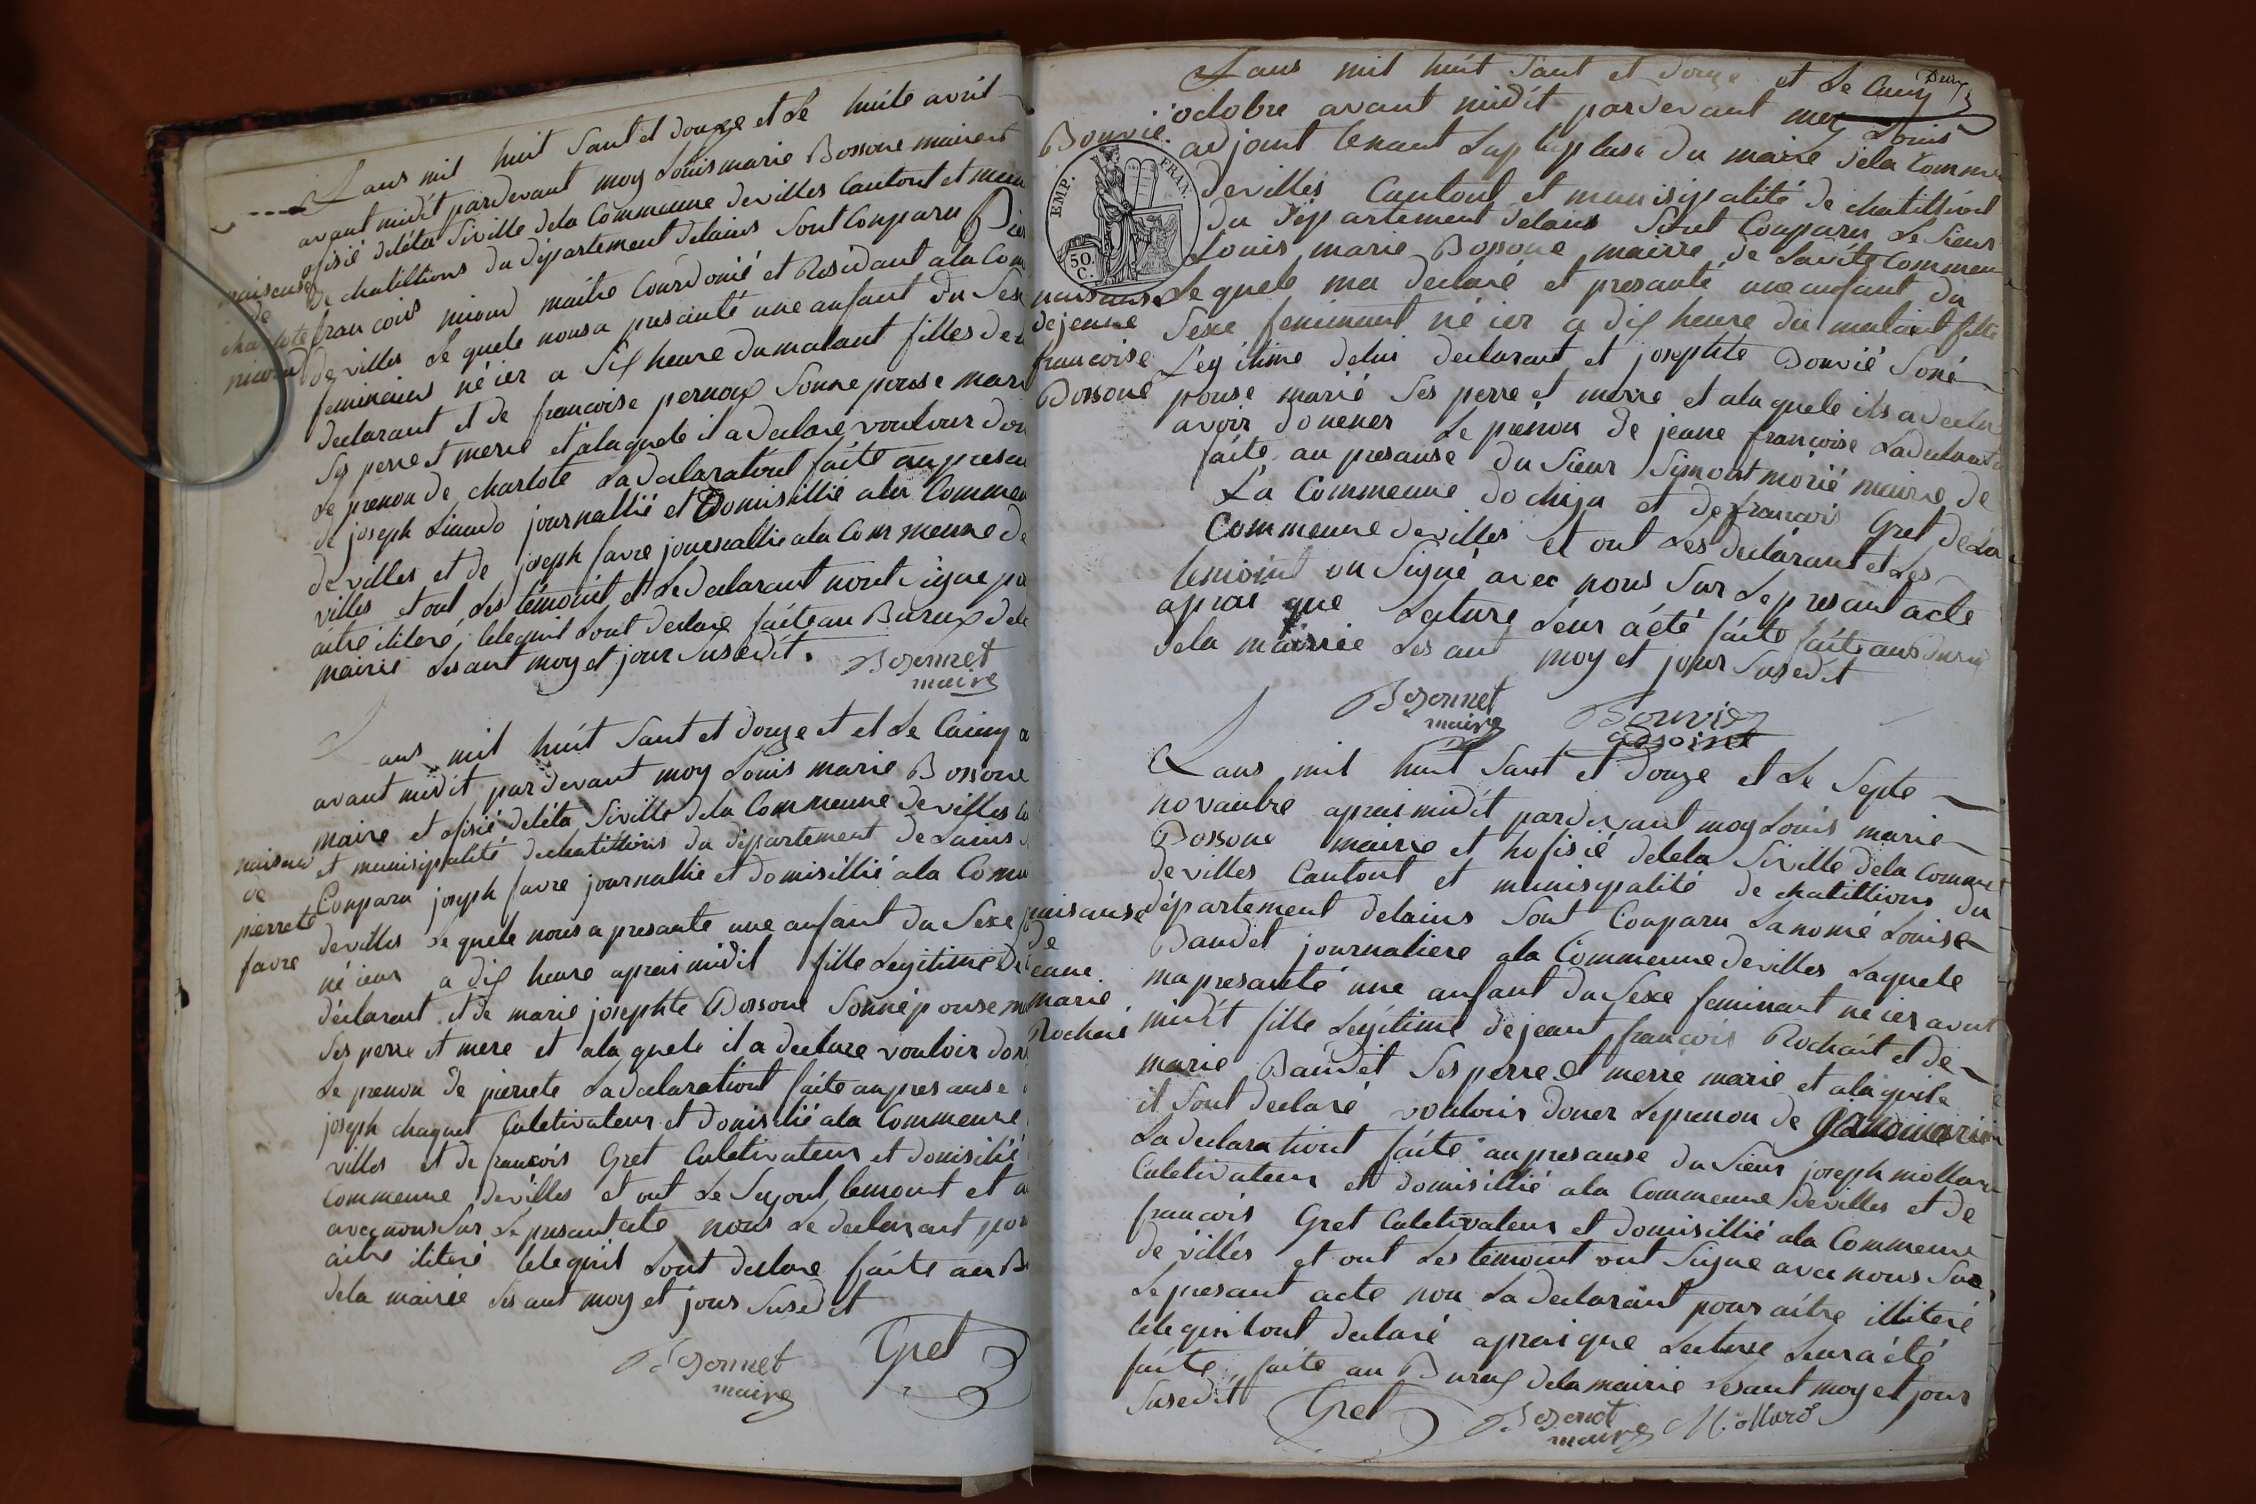 Lans mil huit Sant et douze et Le huite avril
avant midit pardevant moy Louis marie Bossone maire et
ofisié deléta Siville dela Commeune devilles Cantont et muni
de chatillions du département delains Sont Conparu
naisense
de
charlote
francois maitre Courdonié et Residant ala Com
devilles Le quele nousa presanté une anfant du Sexe
feminains né ier a Six heure dumatant filles de
declarant et de francoise pernoux Sonne pouse mari
Ses perre et merre et alaquele il a declaré vouloir don
Le prenon de charlote Ladeclarationt faite anpresan
de joseph journallié et Domisillié ala Commeu
devilles et de joseph favre journallié ala Commeune de
villes et ont Les témoint et Ledeclarant nont Signe pou
aitre iliteré lelequil Lont declare faite au Bureux dela
mairie Lesant moy et jour Susedit.
Bosonnet
maire
Lans mil huit Sant et douze et et Le Cainq
avant midit pardevant moy Louis marie Bossone
maire et ofisié deléta Siville dela Commeune devilles
naisense
de
pierrete
favre
et munisipalité dechatillions du département de Lains
Conparu joseph favre journallié et domisillié ala Commeu
devilles Le quele nous a presante une anfant du Sexe
né ier a dix heure aprai midit fille Legitime de
déclarant et de marie josephte Bossone Sonnépouse ma
Ses perre et mere et ala quele il a declare vouloir don
Le prenon de pierrete Ladeclarationt faite anpresanse
joseph chaquet Culetivateur et domisilié ala Commeune
villes et de francois Gret Culetivateur et domisilié
Commeune devilles et ont Le temoint et
avecnous Sur Le presantacte nous Le declarant pou
aitre iliteré lelequil Lont declare faite au B
dela mairie Lesant moy et jour Susedit
Bosonnet
maire
Gret
Lans mil huit Sant et douze et Le Cainq
octobre avant midit pardevant moy Louis
Bouvié adjoint tenant Laplase du maire dela Commeu
devilles Cantont et munisipalité de chatilliont
du département delains Sont Conparu Le Sieur
EMP. FRAN.
50 C.
Louis marie Bossone mairre de Ladite Commeun
naisanse
de jeanne
francoise
Bossone
Le quele ma declaré et presanté une anfant du
Sexe feminant né ier a dix heure du matint fille
Legitime delui declarant et josephte Bouvié Soné
pouse marié Ses perre et merre et ala quele ils a declar
avoir donener Le prénon de jeane francoise Ladeclarat
faite an presanse du Sieur Simont morié mairre de
La Commeune dochija et de francois Gret de La
Commeune devilles et ont Les declarant et Les
temoint on Signé avec nous Sur Le presant acte
aprai que Lecture Leur a été faite faite aus
dela mairrie Les ant moy et jour Susedit
Bosonnet
maire
Bouvier
adjoint
Lans mil huit Sant et douze et Le Septe
novanbre aprai midit pardevant moy Louis marie
Bossone mairre et hofisié deleta Siville dela Commeu
devilles Cantont et munisipalité de chatillions du
naisanse
de
jeanne
marie
Rochai
département delains Sont Conparu Lanomé Louise
Baudet journaliere ala Commeune devilles Laquele
mapresanté une anfant du Sexe feminant né ier avant
midit fille Legitime dejeant francois Rochait et de
marie Baudet Ses perre et merre marié et alaquele
il Sont declaré vouloir doner Leprenon de
Ladeclarationt faite anpresanse du Sieur joseph mollar
Culetivateur et domisillié ala Commeune devilles et de
francois Gret Culetivateur et domisillié ala Commeune
devilles et ont Les temoint ont Signe avec nous Sur
Le presant acte non Ladeclarant pour aitre illiteré
lelequil Lont declaré aprai que Lecture Leura été
faite faite au Bureux dela mairie Lesant moy et jour
Susedit
Gret
Bosonot
maire
Mollard